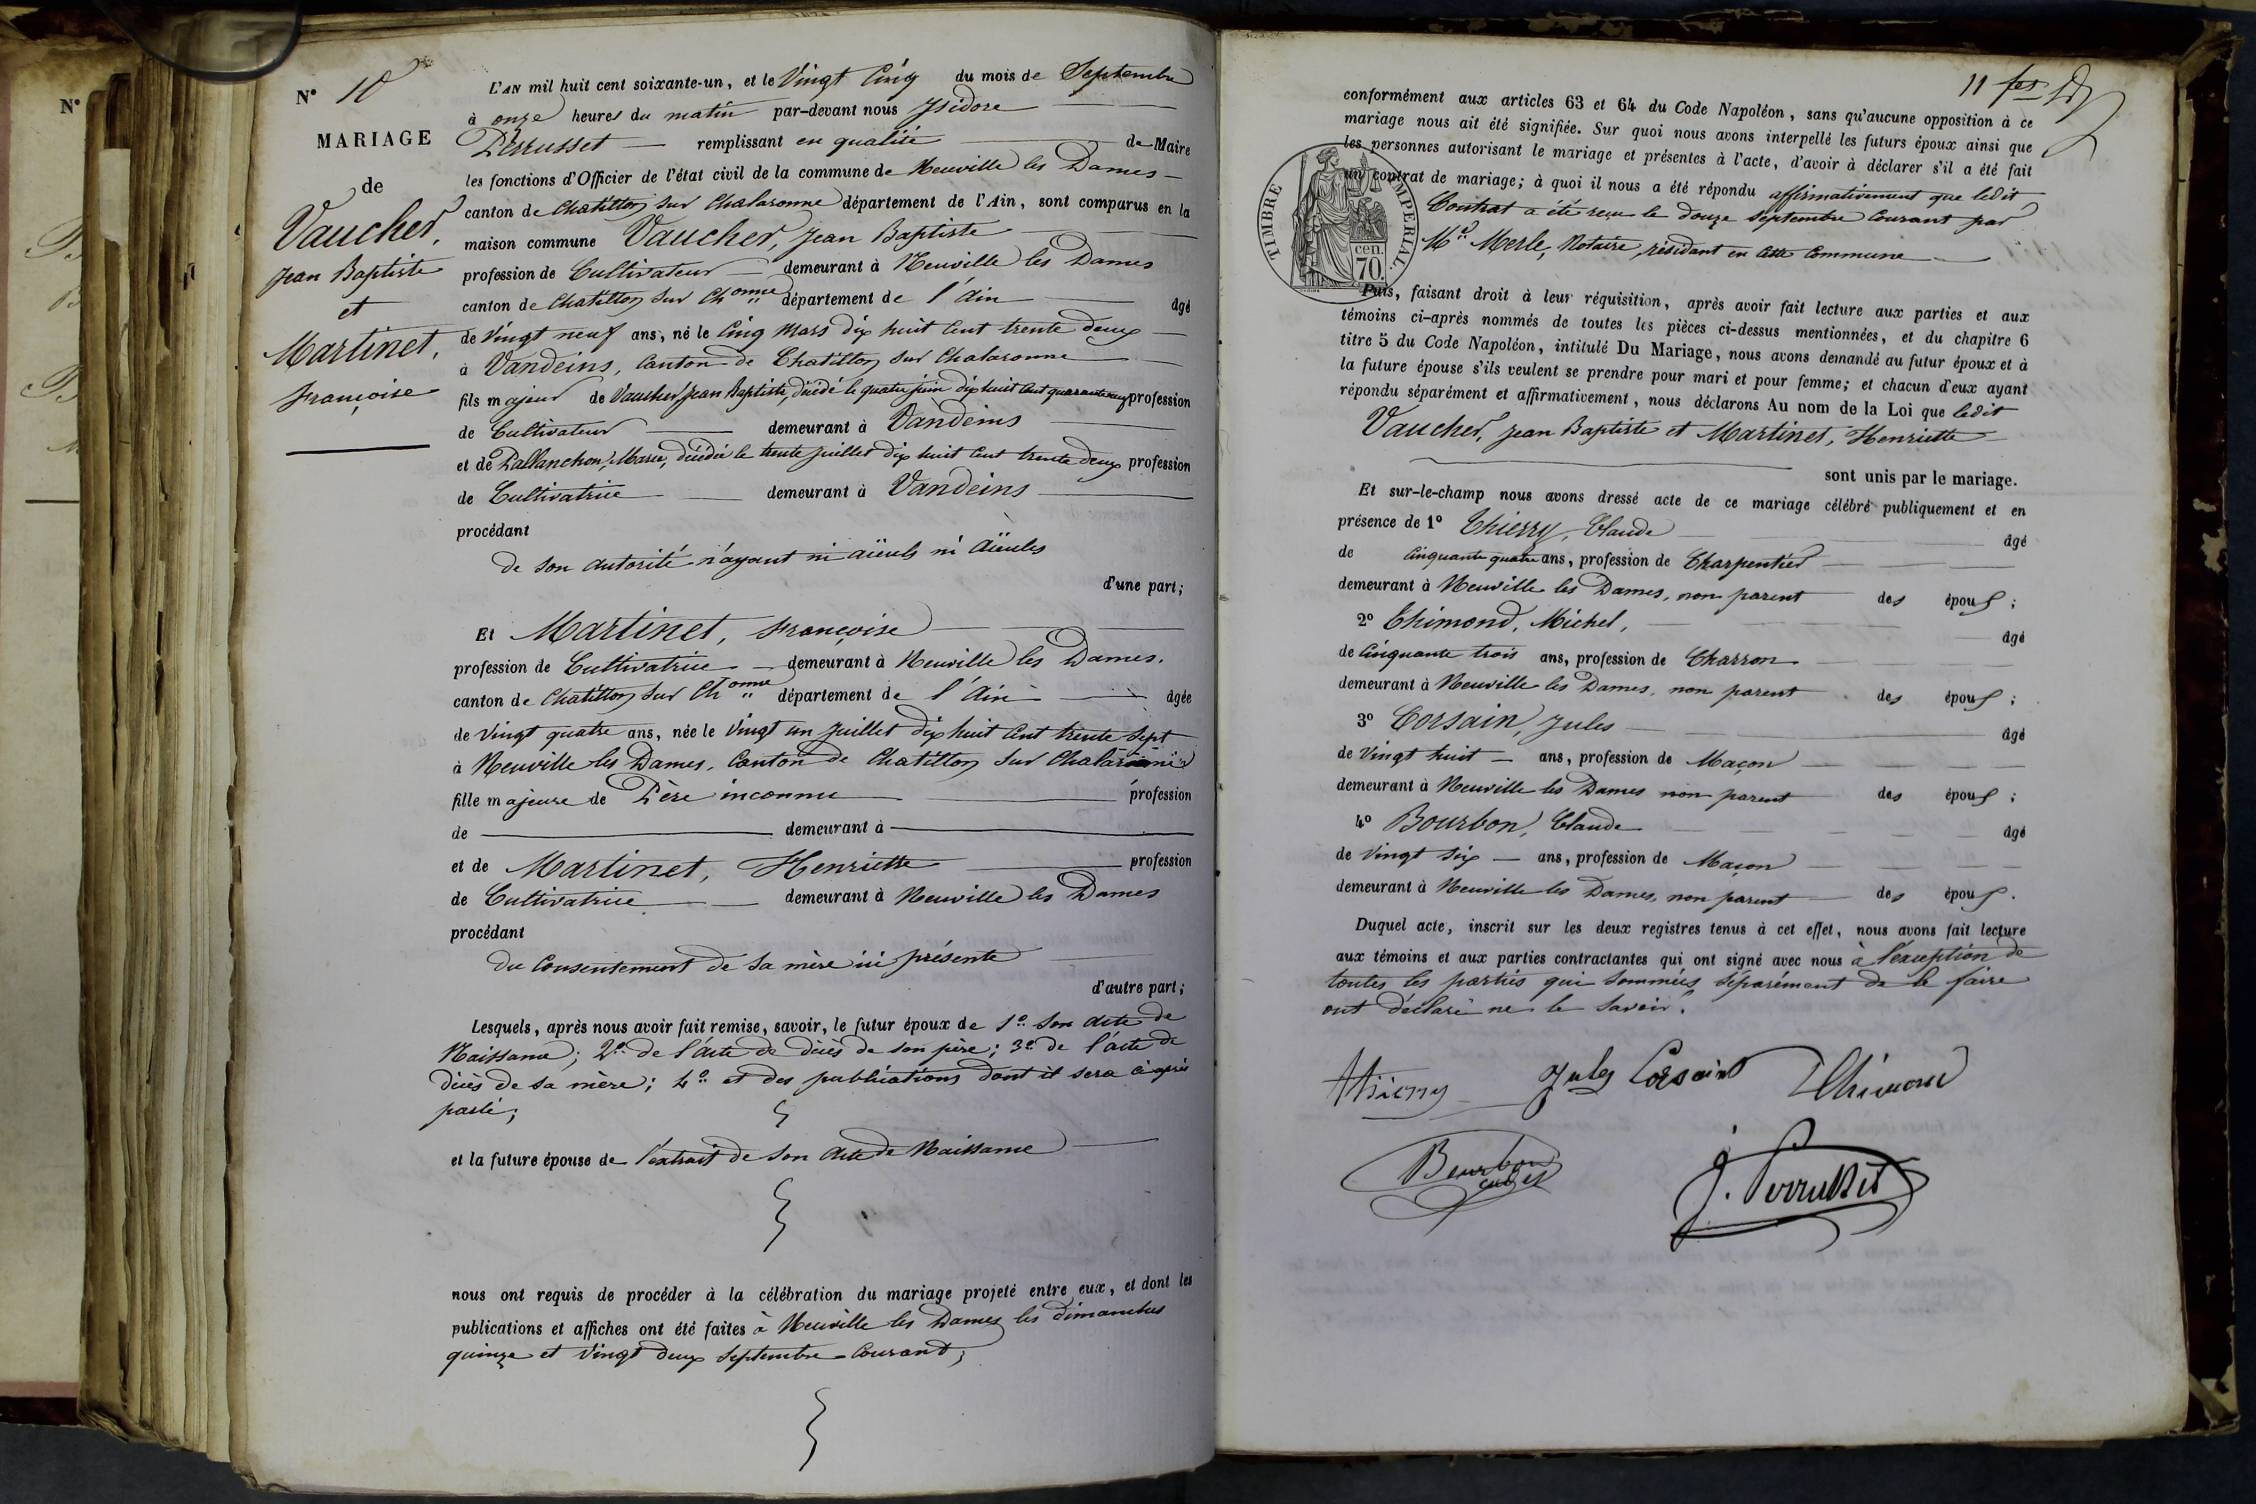 N° 10
MARIAGE
de
Vaucher,
Jean Baptiste
et
Martinet,
Françoise
L'AN mil huit cent soixante-un, et le Vingt Cinq du mois de Septembre
à onze heures du matin par-devant nous Isidore
Perrusset remplissant en qualité de Maire
les fonctions d'Officier de l'état civil de la commune de Neuville les Dames
canton de Chatillon sur Chalaronne département de l'Ain, sont comparus en la
maison commune Vaucher, Jean Baptiste
profession de Cultivateur demeurant à Neuville les Dames
canton de Chatillon sur Chonne département de l'Ain âgé
de Vingt neuf ans, né le Cinq Mars dix huit Cent trente deux
à Vandeins, Canton de Chatillon sur Chalaronne
fils majeur de Vaucher Jean Baptiste, décédé le quatre juin dix huit Cent quarante profession
de Cultivateur demeurant à Vandeins
et de Pallanchon, Marie, décédée le trente juillet dix huit Cent trente deux profession
de Cultivatrice demeurant à Vandeins
procédant
de son autorité n'ayant ni aïeuls ni aïeules
d'une part;
Et Martinet, Françoise
profession de Cultivatrice demeurant à Neuville les Dames.
canton de Chatillon sur Chonne département de l'Ain âgée
de Vingt quatre ans, née le Vingt un juillet dix huit Cent trente Sept
à Neuville les Dames, Canton de Chatillon sur Chalaronne
fille majeure de Père inconnu profession
de demeurant à
et de Martinet, Henriette profession
de Cultivatrice demeurant à Neuville les Dames
procédant
du Consentement de Sa mère ici présente
d'autre part;
Lesquels, après nous avoir fait remise, savoir, le futur époux de 1° Son acte de
Naissance; 2° de l'acte de décès de son père; 3° de l'acte de
décès de sa mère; 4° et des publications dont il sera ci après
parlé;
et la future épouse de l'extrait de Son Acte de Naissance
nous ont requis de procéder à la célébration du mariage projeté entre eux, et dont les
publications et affiches ont été faites à Neuville les Dames les dimanches
quinze et Vingt deux Septembre Courant;
11
conformément aux articles 63 et 64 du Code Napoléon, sans qu'aucune opposition à ce
mariage nous ait été signifiée. Sur quoi nous avons interpellé les futurs époux ainsi que
les personnes autorisant le mariage et présentes à l'acte, d'avoir à déclarer s'il a été fait
un contrat de mariage; à quoi il nous a été répondu affirmativement que ledit
Contrat a été reçu le douze Septembre Courant par
Me Merle, Notaire, résidant en cette Commune
TIMBRE IMPERIAL.
cen.
70.
Puis, faisant droit à leur réquisition, après avoir fait lecture aux parties et aux
témoins ci-après nommés de toutes les pièces ci-dessus mentionnées, et du chapitre 6
titre 5 du Code Napoléon, intitulé Du Mariage, nous avons demandé au futur époux et à
la future épouse s'ils veulent se prendre pour mari et pour femme; et chacun d'eux ayant
répondu séparément et affirmativement, nous déclarons Au nom de la Loi que ledit
Vaucher, Jean Baptiste et Martinet, Henriette
sont unis par le mariage.
Et sur-le-champ nous avons dressé acte de ce mariage célébré publiquement et en
présence de 1° Thierry, Claude âgé
de Cinquante quatre ans, profession de Charpentier
demeurant à Neuville les Dames, non parent des époux;
2° Thimond, Michel, âgé
de Cinquante trois ans, profession de Charron
demeurant à Neuville les Dames, non parent des époux;
3° Corsain, Jules âgé
de Vingt huit ans, profession de Maçon
demeurant à Neuville les Dames non parent des époux;
4° Bourbon, Claude âgé
de Vingt Six ans, profession de Maçon
demeurant à Neuville les Dames, non parent des époux.
Duquel acte, inscrit sur les deux registres tenus à cet effet, nous avons fait lecture
aux témoins et aux parties contractantes qui ont signé avec nous à l'exception de
toutes les parties qui Sommées Séparément de le faire
ont déclaré ne le Savoir.
Thierry Jules Corsaint Thimond
Bourbon
J. Perrusset
N°